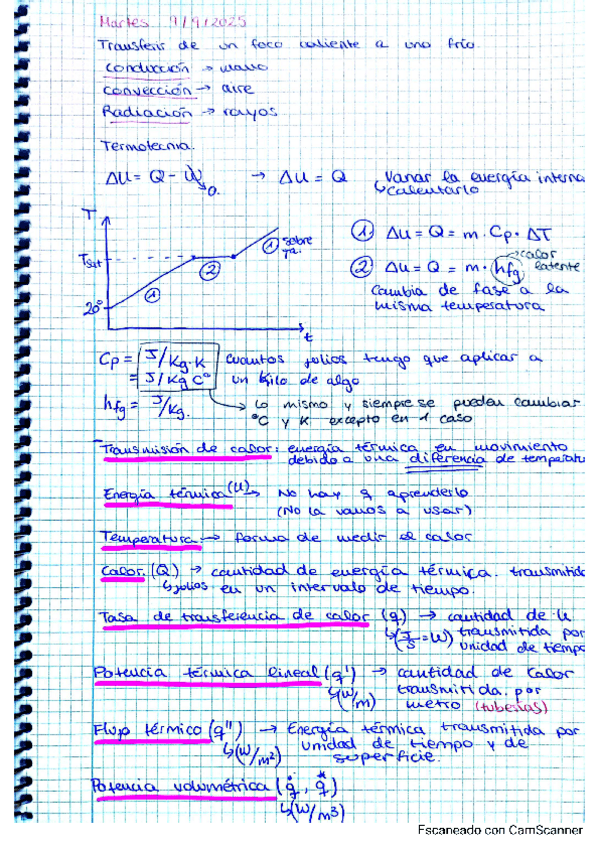 Martes 9/9/2025
Transferir de un foco caliente a uno frío.
Conducción → mano
Convección → aire
Radiación → rayos
Termotecnia.
ΔU = Q - W → ΔU = Q Variar la energía interna
0. ↳ calentarlo
T
① ΔU = Q = m · Cp · ΔT
① sobre
Tsat
② ② ΔU = Q = m · hfg → calor latente
① Cambia de fase a la
20° misma temperatura
t
Cp = J/Kg·K Cuantos julios tengo que aplicar a
= J/Kg C° un kilo de algo
hfg = J/Kg. → lo mismo y siempre se pueden cambiar
°C y K excepto en 1 caso
Transmisión de calor: energía térmica en movimiento
debido a una diferencia de temperatu
Energía térmica (U) → No hay q aprenderlo
(No la vamos a usar)
Temperatura → forma de medir el calor
Calor (Q) → cantidad de energía térmica transmitida
↳ julios en un intervalo de tiempo.
Tasa de transferencia de calor (q) → cantidad de U
↳ (J/S = W) transmitida por
unidad de tiempo
Potencia térmica lineal (q') → cantidad de calor
↳ (W/m) transmitida por
metro (tuberías)
Flujo térmico (q'') → Energía térmica transmitida por
↳ (W/m²) unidad de tiempo y de
superficie.
Potencia volumétrica (q̇, q̇)
↳ (W/m³)
Escaneado con CamScanner